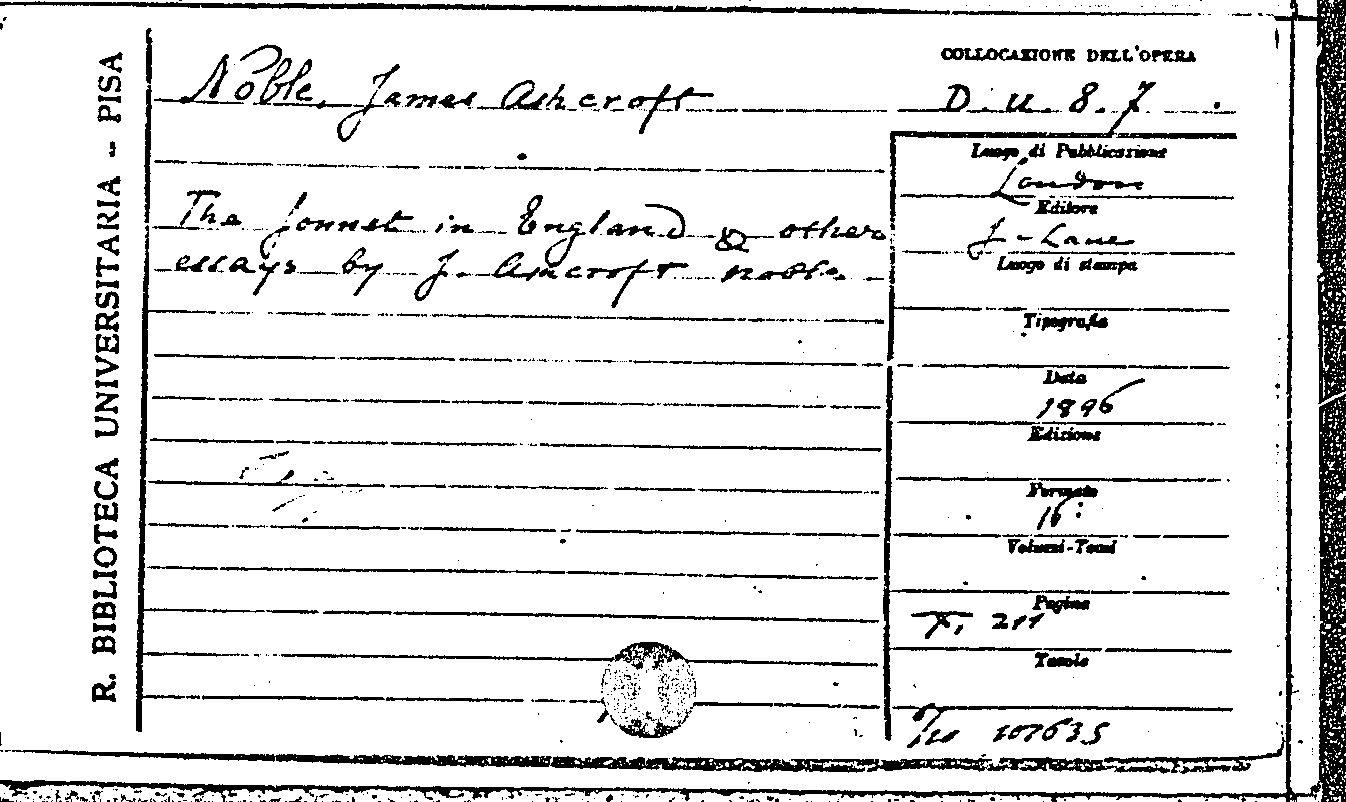 R. BIBLIOTECA UNIVERSITARIA - PISA
Noble, James Ashcroft
The Sonnet in England & other
essays by J. Ashcroft Noble.
COLLOCAZIONE DELL'OPERA
D. u. 8. 7.
Luogo di Pubblicazione
London
Editore
J. Lane
Luogo di stampa
Tipografia
Data
1896
Edizione
Formato
16°
Volumi-Tomi
Pagine
X, 211
Tavole
107635